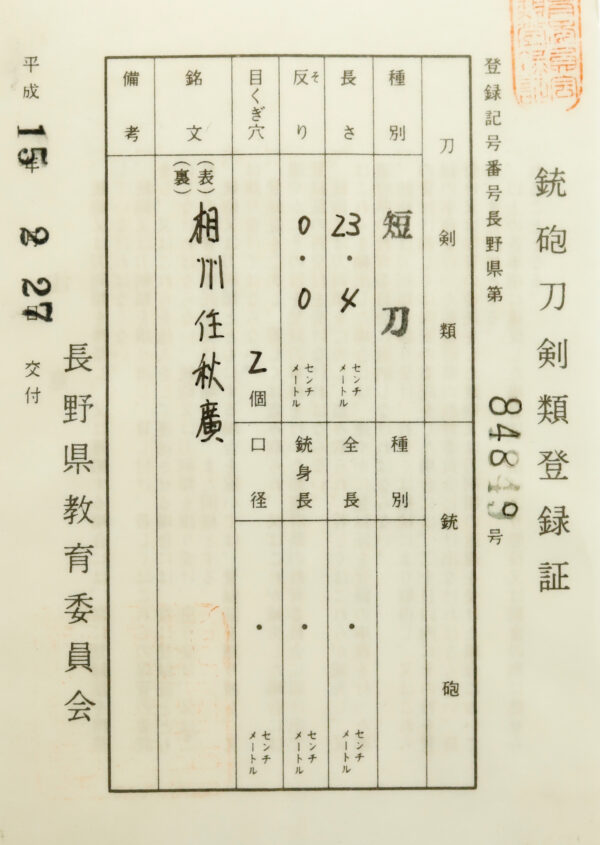 銃砲刀剣類登録証
登録記号番号長野県第84819号
刀剣類
種別 短刀
長さ 23.4センチメートル
反り そ 0.0センチメートル
目くぎ穴 2個
銘文 (表) 相州住秋廣
(裏)
備考
銃砲
種別
全長 ・センチメートル
銃身長 ・センチメートル
口径 ・センチメートル
平成15年2月27日交付
長野県教育委員会